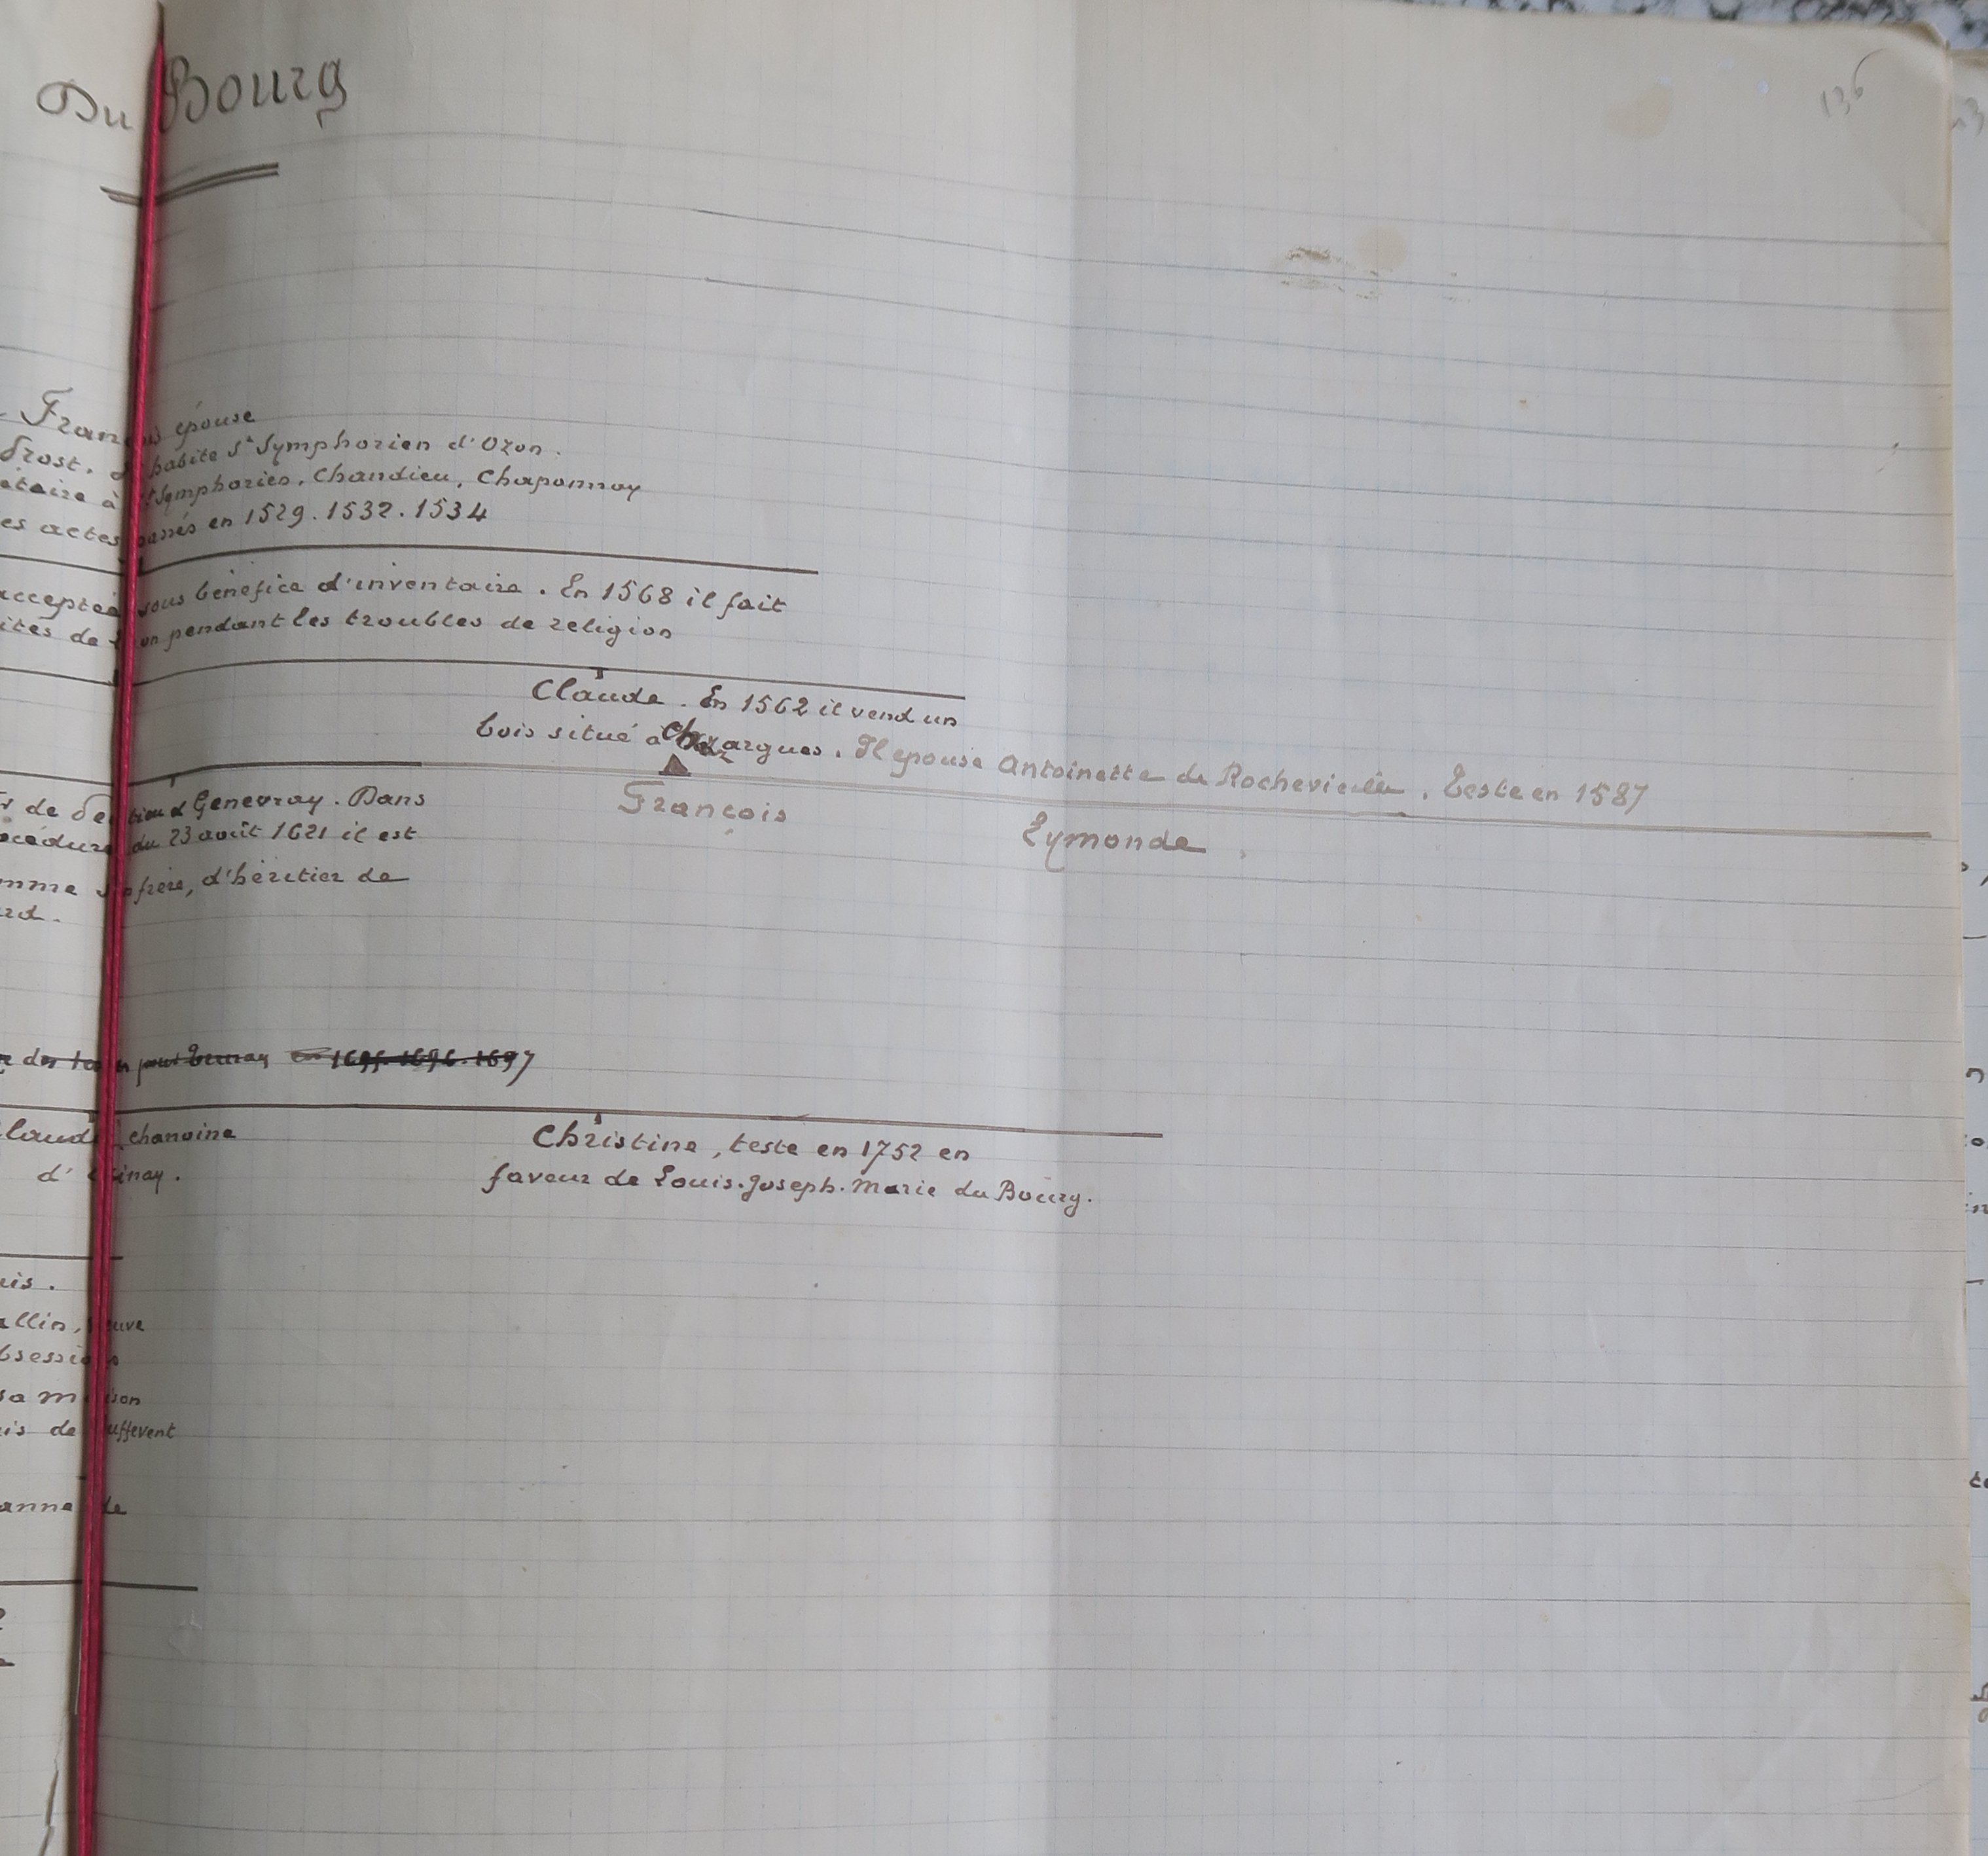 136
Du Bourg
François épouse
Prost. habite St Symphorien d'Ozon.
à St Symphorien, Chandieu, Chaponnay
es actes passés en 1529. 1532. 1534
sous bénéfice d'inventaire. En 1568 il fait
ités de pendant les troubles de religion
Claude. En 1562 il vend un
bois situé à Chezargues. Il épouse Antoinette de Rochevieille. Teste en 1587
François Eymonde
de Genevray. Dans
du 23 août 1621 il est
frère, d'héritier de
rd.
1697
chanoine
d'Ainay.
Christine, teste en 1752 en
faveur de Louis. Joseph. Marie du Bourg.
allin, veuve
obsession
sa maison
is de
anne de